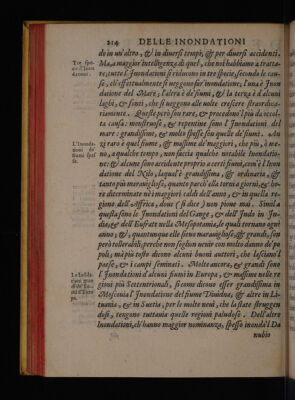 214 DELLE INONDATIONI
do in un'altro, & in diuersi tempi, & per diuersi accidenti.
Tre spe-
cie d'Inon
dationi.
Ma, a maggior intelligenza di quel, che noi habbiamo a tratta-
re, tutte l'Inondationi si riducono in tre specie, secondo le cau-
se, ch'effettualmente si veggono far inondatione, l'una è Inon
datione del Mare, l'altra è de' fiumi, & la terza è d'alcuni
laghi, & fonti, che si veggono alle volte crescere straordina-
riamente. Queste però son rare, & procedono il più da occol-
ta causa: monstruose, & repentine sono l'Inondationi del
mare: grandissime, & molto spesse son quelle de' fiumi. An
L'Inonda-
tioni de'
fiumi spes
se.
zi raro è quel fiume, & massime de' maggiori, che più, ò me-
no, a qualche tempo, non faccia qualche notabile Inondatio-
ne: & alcune sono accidente proprio a certi fiumi, com'è l'Inon
datione del Nilo, laqual'è grandissima, & ordinaria, &
tanto più marauigliosa, quanto parciò ella terrà i giorni, & ho-
re diterminate ne' i maggiori caldi dell'anno, & in quella re-
gione dell'Affrica, doue (si dice) non pioue mai. Simil a
questa sono le Inondationi del Gange, & dell'Indo in In-
dia, & dell'Eufrate nella Mesopotamia, le quali tornano ogni
anno, &, quantunque elle sieno marauigliose, & grandi, son
però tollerabili, perche non soglion uenir con molto danno de' po
poli; mà più tosto dicono alcuni buoni auttori, che lasciano'l
paese, & i campi seminati. Molte ancora, & grandi sono
l'Inondationi d'alcuni fiumi in Europa, & massime nelle re
gioni più Settentrionali, sì come dicono esser grandissima in
Moscouia l'Inondatione del fiume Diuidna; & altre in Li-
tuania, & in Suetia, per le molte neui, che la state struggen
dosi, tengono tuttauia quelle regioni paludose. Dell'altre
Inondationi, ch'hanno maggior nominanza, spesso inonda'l Da
nubio